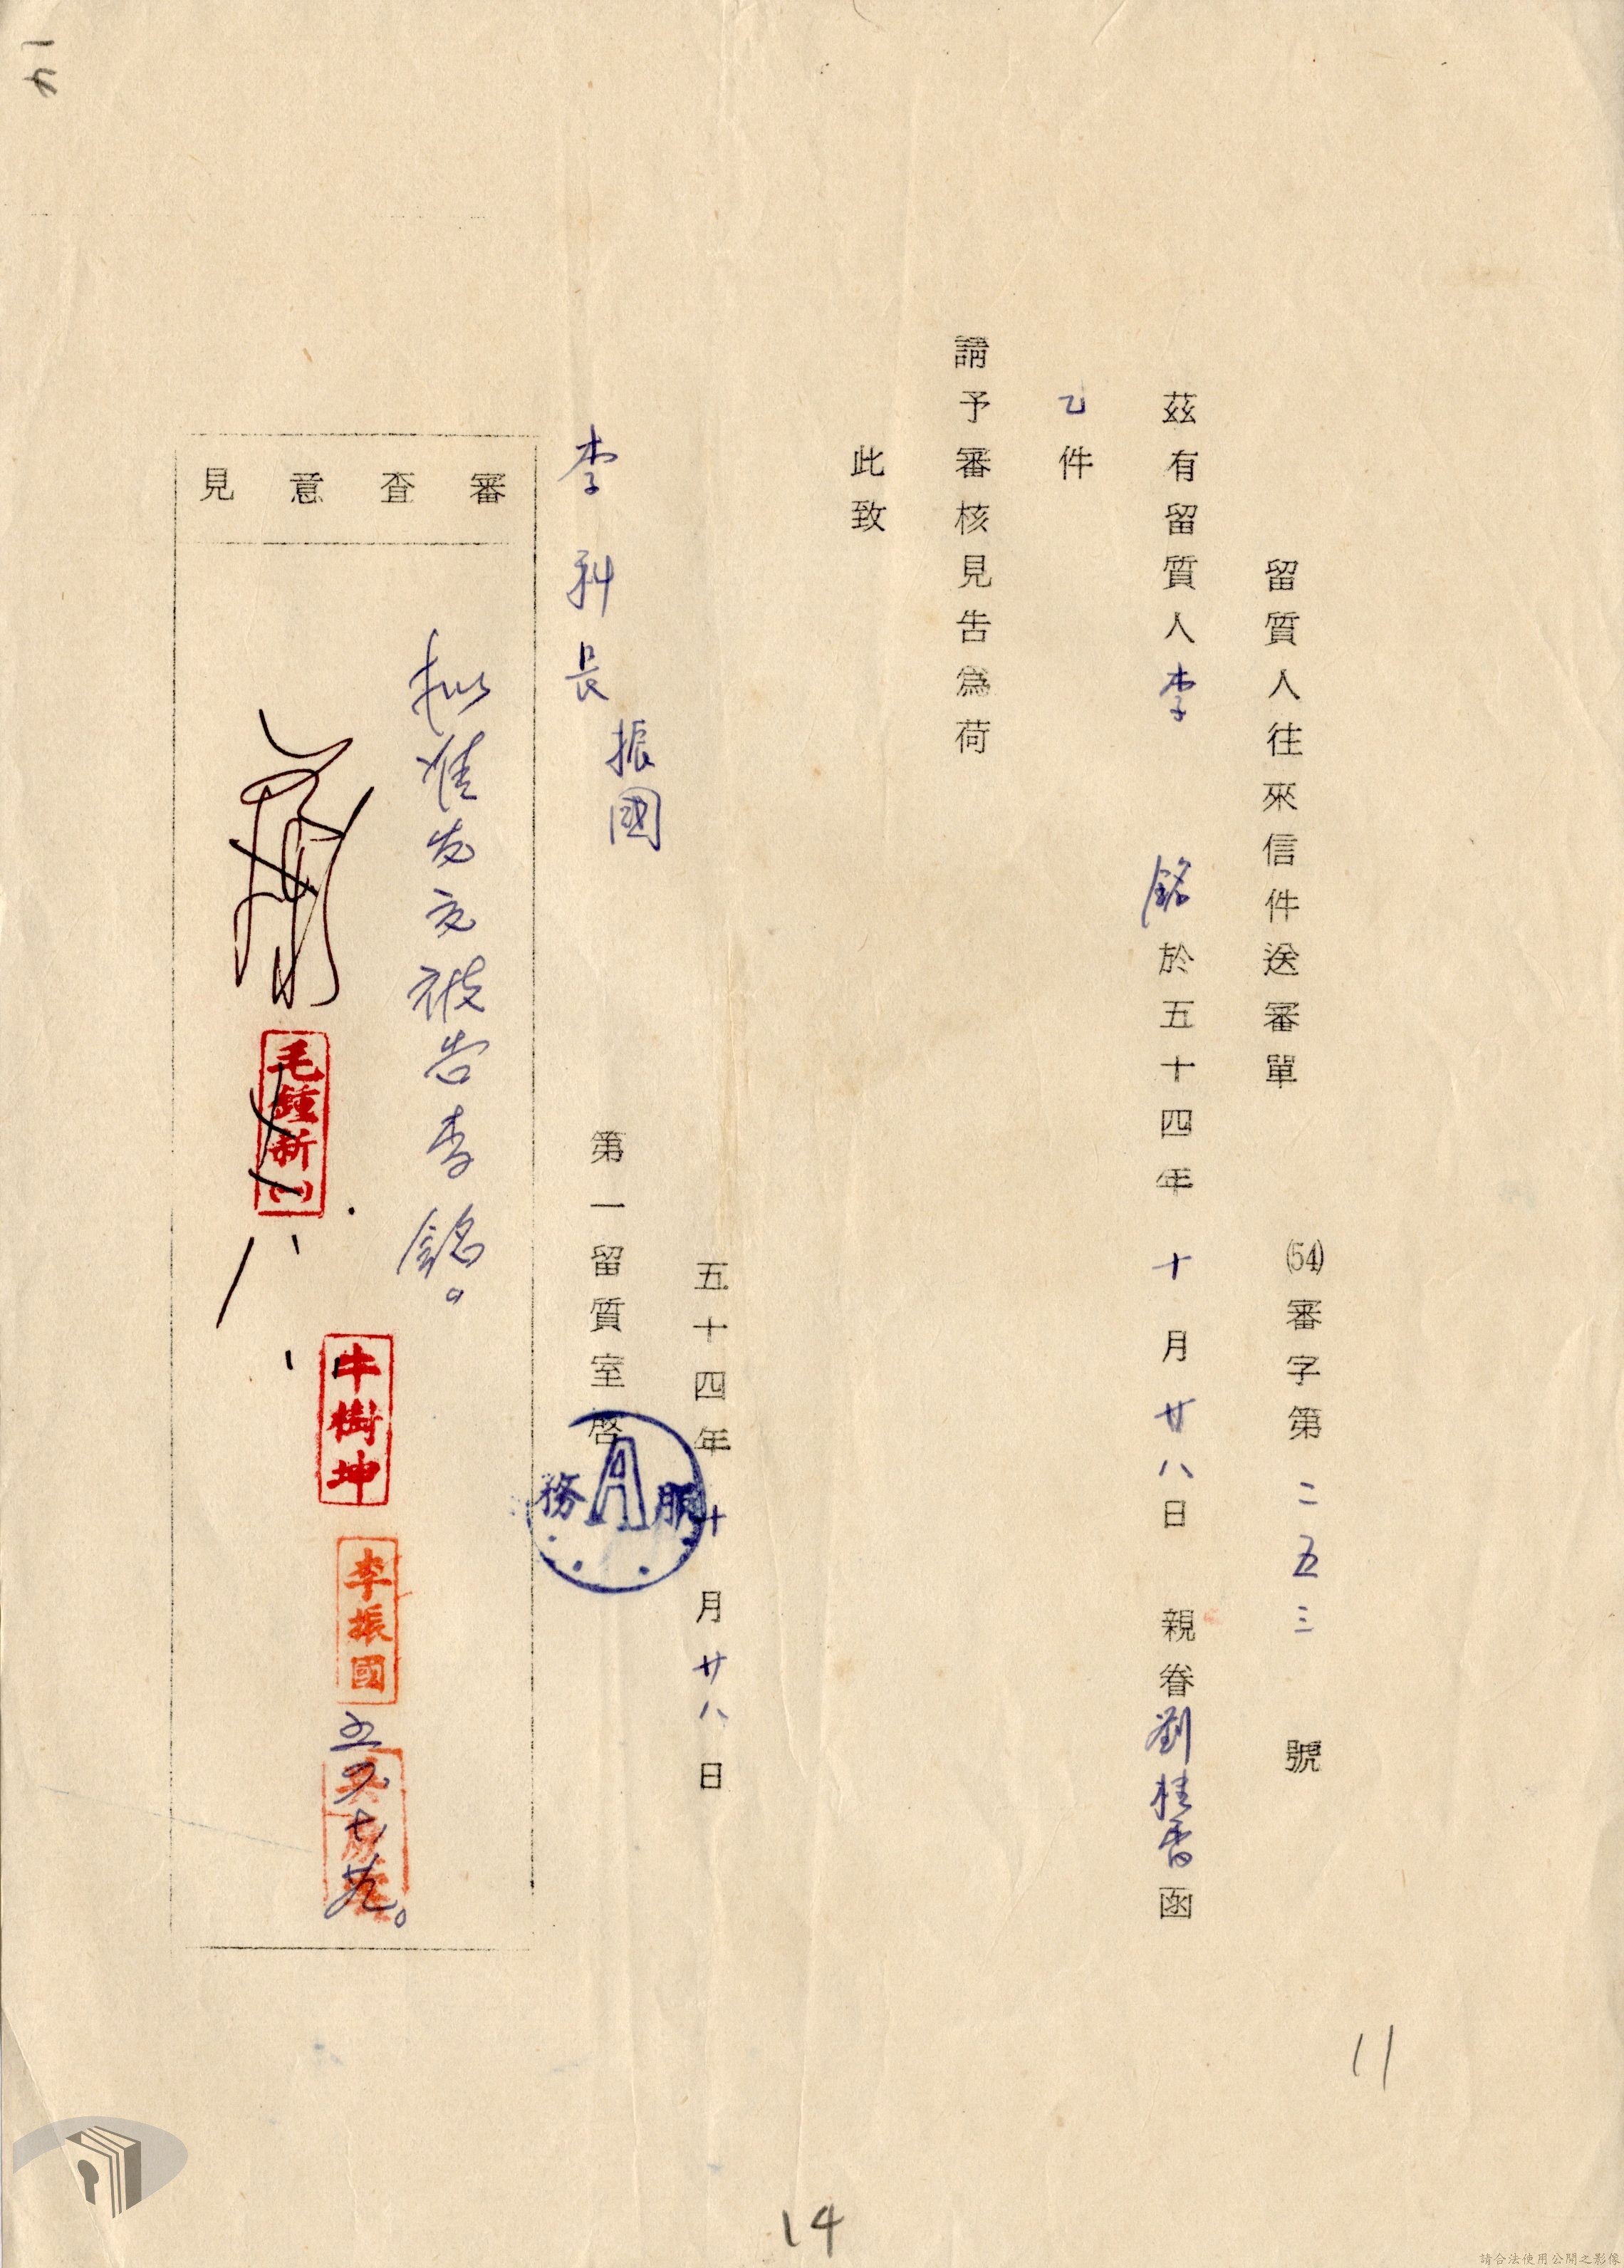 留質人往來信件送審單
(54)審字第二五三號
茲有留質人李銘於五十四年十月廿八日親眷劉桂香函
乙件
請予審核見告為荷
此致
李科長振國
第一留質室啓
五十四年十月廿八日
服A務
審查意見
拟准发交被告李銘。
牛樹坤
李振國
毛鍾新(一)
11
14
請合法使用公開之影像